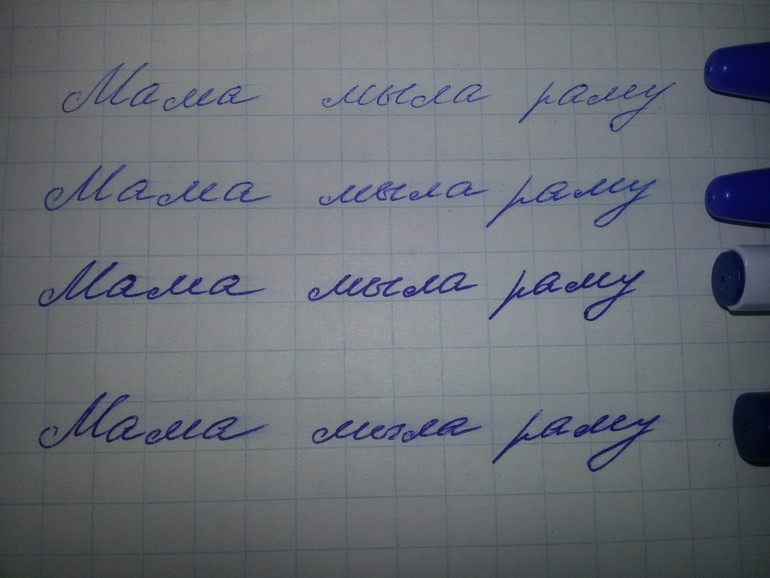 Мама мыла раму
Мама мыла раму
Мама мыла раму
Мама мыла раму